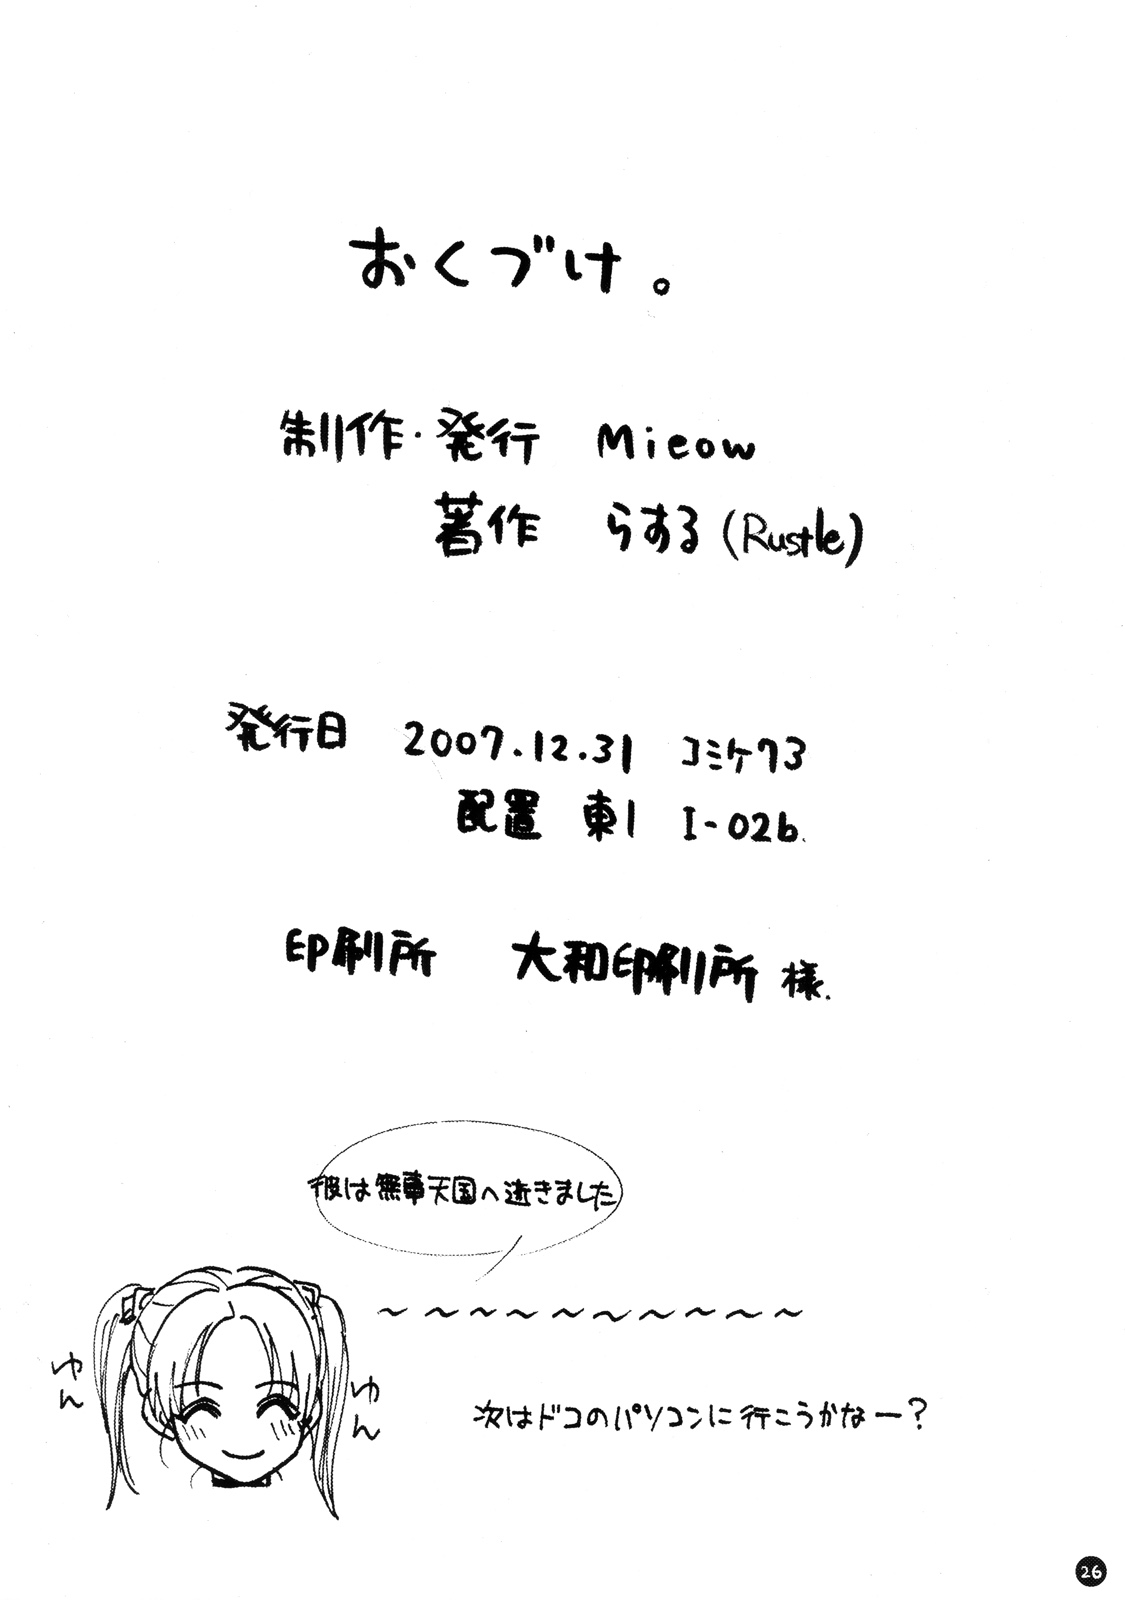 おくづけ。
制作・発行 Mieow
著作 らする(Rustle)
発行日 2007.12.31 コミケ73
配置 東1 I-02b.
印刷所 大和印刷所様.
彼は無事天国へ逝きました
～～～～～～～～～～
ゆん
ゆん
次はドコのパソコンに行こうかなー?
26